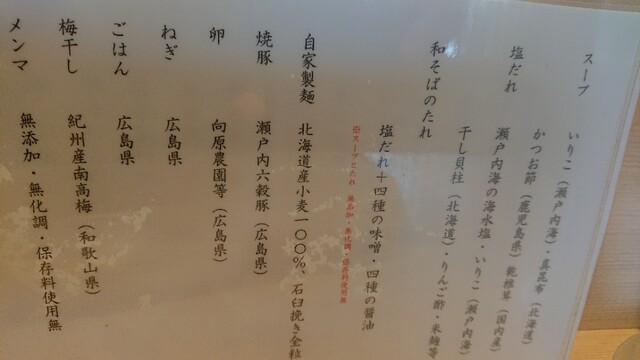 スープ
いりこ（瀬戸内海）・真昆布（北海道）
かつお節（鹿児島県）乾椎茸（国内産）
塩だれ
瀬戸内海の海水塩・いりこ（瀬戸内海）
干し貝柱（北海道）・りんご酢・米麹等
和そばのたれ
塩だれ＋四種の味噌・四種の醤油
※スープとたれ 無添加・無化調・保存料使用無
自家製麺 北海道産小麦一〇〇％、石臼挽き全粒
焼豚 瀬戸内六穀豚（広島県）
卵 向原農園等（広島県）
ねぎ 広島県
ごはん 広島県
梅干し 紀州産南高梅（和歌山県）
メンマ 無添加・無化調・保存料使用無